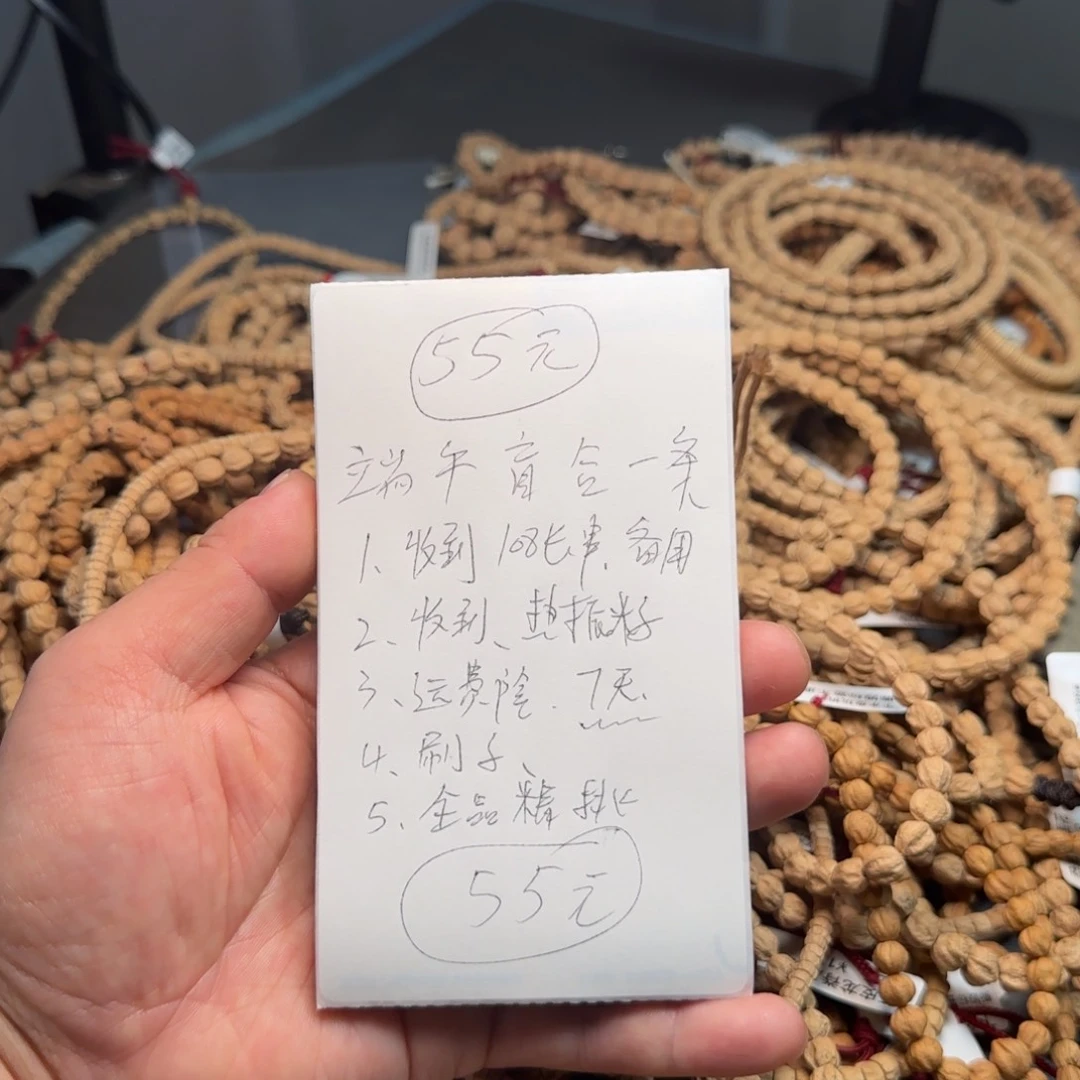 55元
端午盲合一条
1、收到108长串、备用
2、收到、垫振籽
3、运费险.7天.
4、刷子、
5、全品精挑
55元